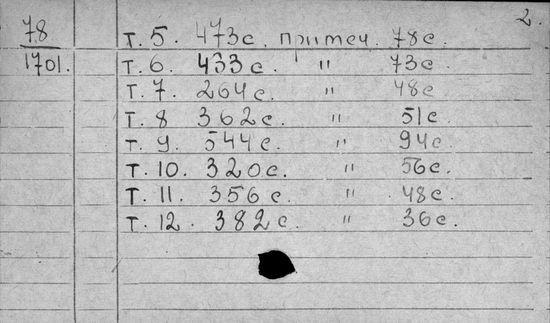 2.
78
1701.
т. 5. 473с. примеч. 78с.
т. 6. 433с. " 73с.
т. 7. 264с. " 48с.
т. 8 362с. " 51с
т. 9. 544с. " 94с.
т. 10. 320с. " 56с.
т. 11. 356с. " 48с.
т. 12. 382с. " 36с.